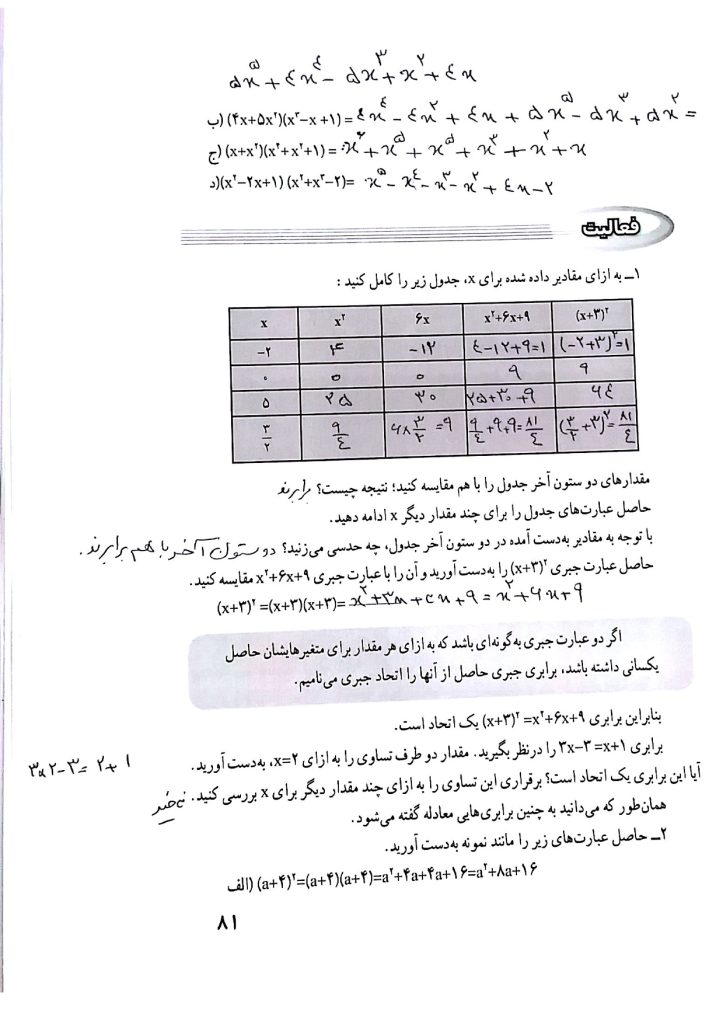 ۵x^۵ + ۴x^۴ − ۵x^۳ + x^۲ + ۴x
ب) (۴x+۵x^۲)(x^۳−x+۱)= ۴x^۴ − ۴x^۲ + ۴x + ۵x^۵ − ۵x^۳ + ۵x^۲ =
ج) (x+x^۲)(x^۳+x^۲+۱)= x^۴ + x^۵ + x^۵ + x^۳ + x^۲ + x
د) (x^۲−۲x+۱)(x^۲+x^۳−۲)= x^۵ − x^۴ − x^۳ − x^۲ + ۴x − ۲
فعالیت
۱ــ به ازای مقادیر داده شده برای x، جدول زیر را کامل کنید :
x x^۲ ۶x x^۲+۶x+۹ (x+۳)^۲
−۲ ۴ −۱۲ ۴−۱۲+۹=۱ (−۲+۳)^۲=۱
۰ ۰ ۰ ۹ ۹
۵ ۲۵ ۳۰ ۲۵+۳۰+۹ ۶۴
۳/۲ ۹/۴ ۶×۳/۲=۹ ۹/۴+۹+۹=۸۱/۴ (۳/۲+۳)^۲=۸۱/۴
مقدارهای دو ستون آخر جدول را با هم مقایسه کنید؛ نتیجه چیست؟ برابرند
حاصل عبارت‌های جدول را برای چند مقدار دیگر x ادامه دهید.
با توجه به مقادیر به‌دست آمده در دو ستون آخر جدول، چه حدسی می‌زنید؟ دو ستون آخر با هم برابرند.
حاصل عبارت جبری (x+۳)^۲ را به‌دست آورید و آن را با عبارت جبری x^۲+۶x+۹ مقایسه کنید.
(x+۳)^۲=(x+۳)(x+۳)= x^۲+۳x+۳x+۹ = x^۲+۶x+۹
اگر دو عبارت جبری به‌گونه‌ای باشد که به ازای هر مقدار برای متغیرهایشان حاصل
یکسانی داشته باشد، برابری جبری حاصل از آنها را اتحاد جبری می‌نامیم.
بنابراین برابری (x+۳)^۲=x^۲+۶x+۹ یک اتحاد است.
برابری ۳x−۳=x+۱ را درنظر بگیرید. مقدار دو طرف تساوی را به ازای x=۲، به‌دست آورید. ۳×۲−۳=۲+۱
آیا این برابری یک اتحاد است؟ برقراری این تساوی را به ازای چند مقدار دیگر برای x بررسی کنید. نه خیر
همان‌طور که می‌دانید به چنین برابری‌هایی معادله گفته می‌شود.
۲ــ حاصل عبارت‌های زیر را مانند نمونه به‌دست آورید.
الف) (a+۴)^۲=(a+۴)(a+۴)=a^۲+۴a+۴a+۱۶=a^۲+۸a+۱۶
۸۱